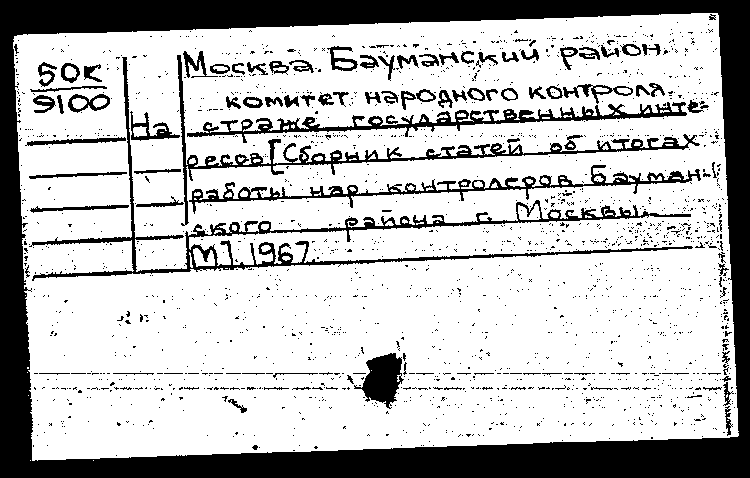 50К
9100
Москва. Бауманский район.
комитет народного контроля.
На страже государственных инте-
ресов [Сборник статей об итогах
работы нар. контролеров Бауман-
ского района г. Москвы.
М], 1967.